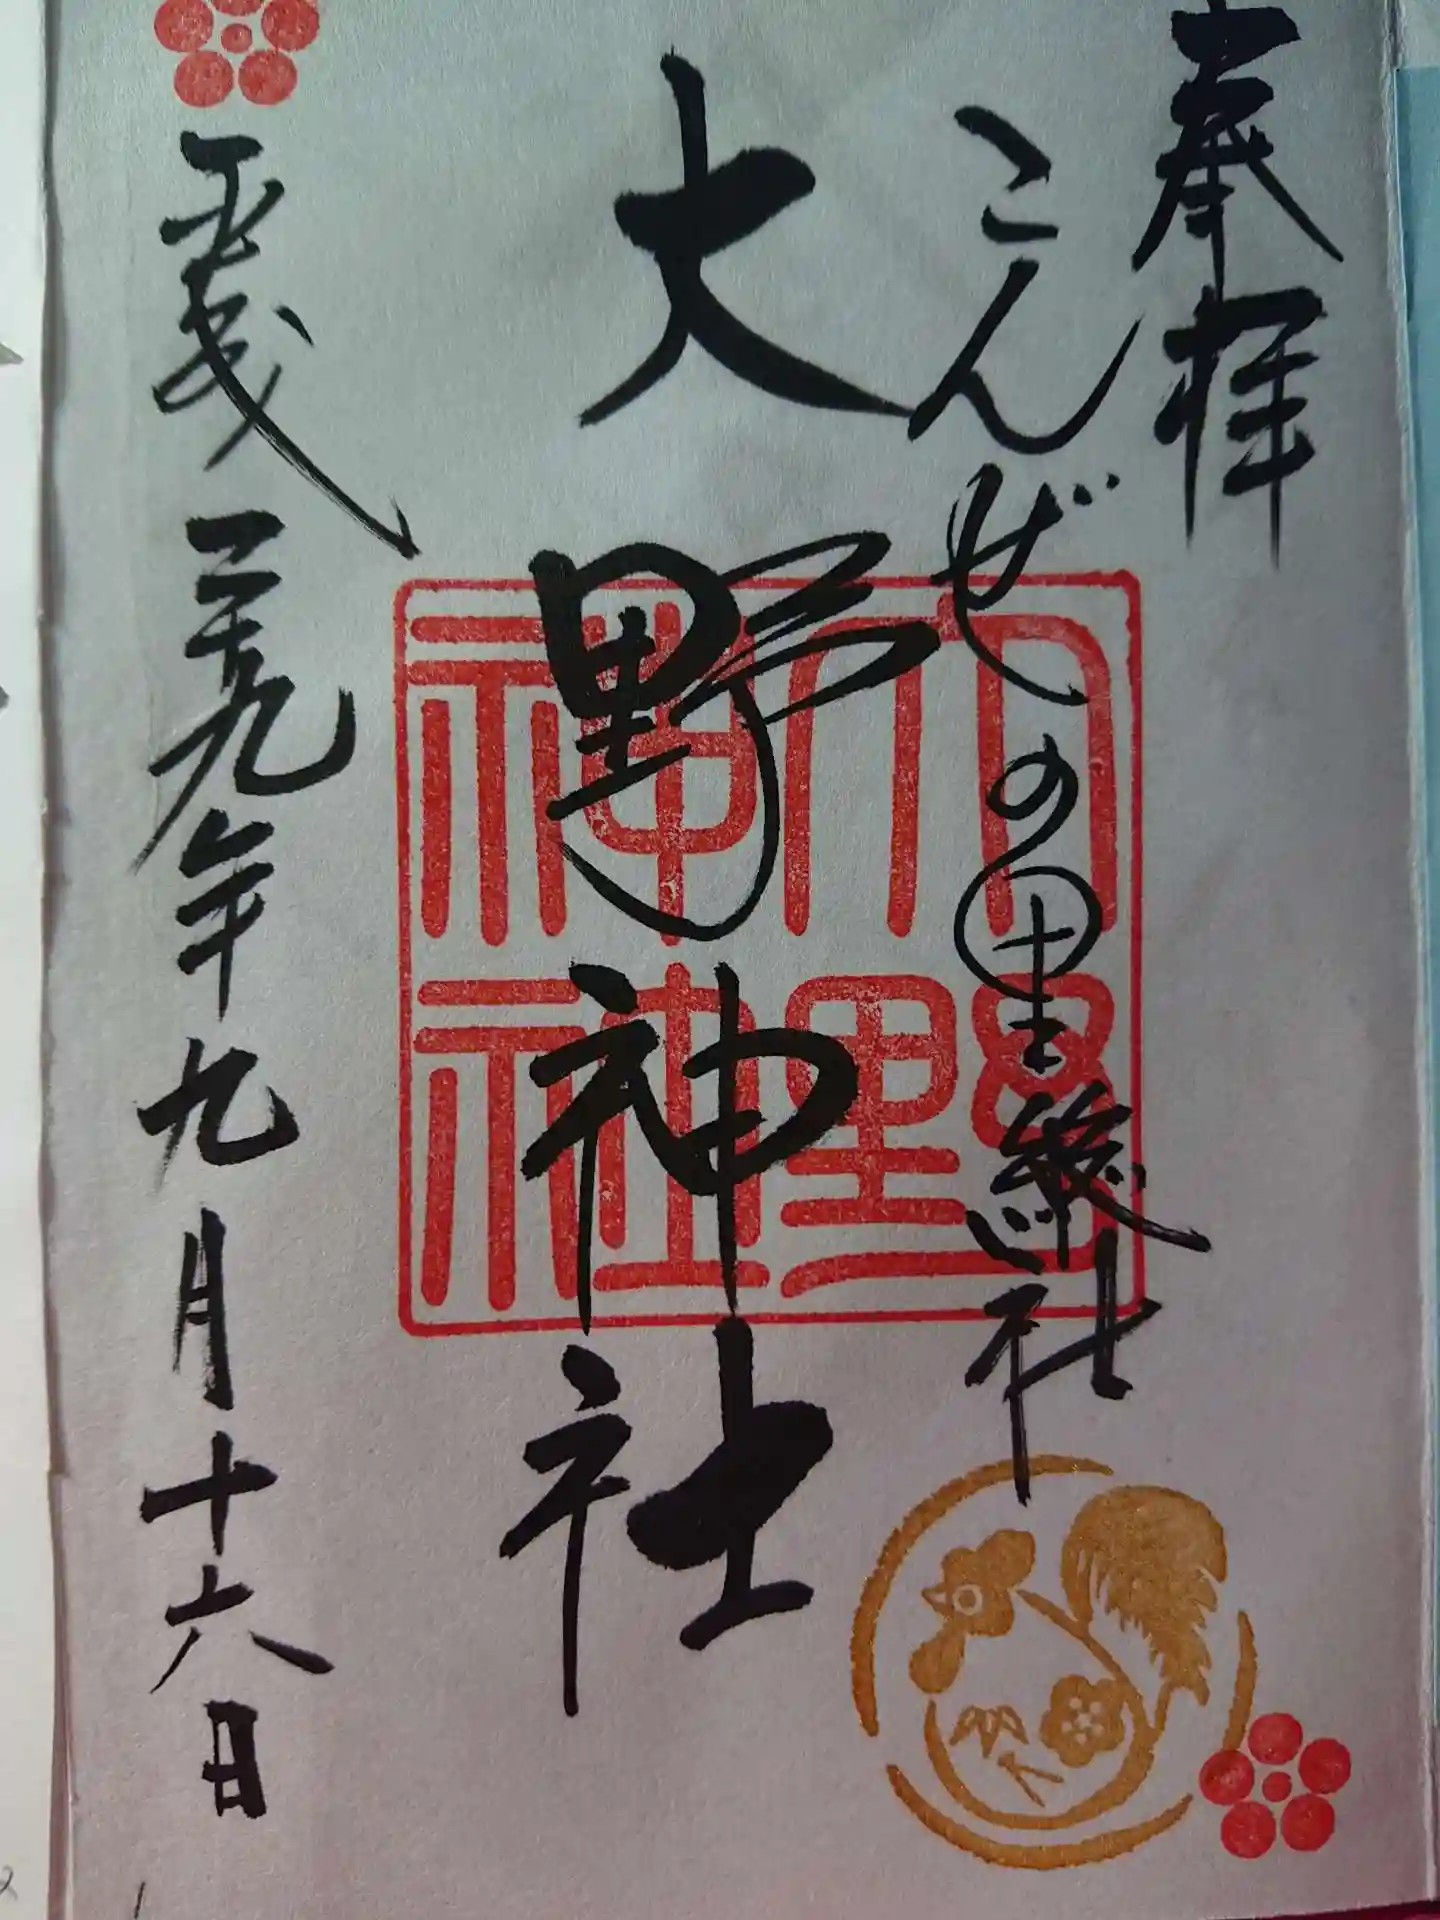 奉拝
こんぜの里総社
大野神社
平成二十九年九月十六日
大野
神社